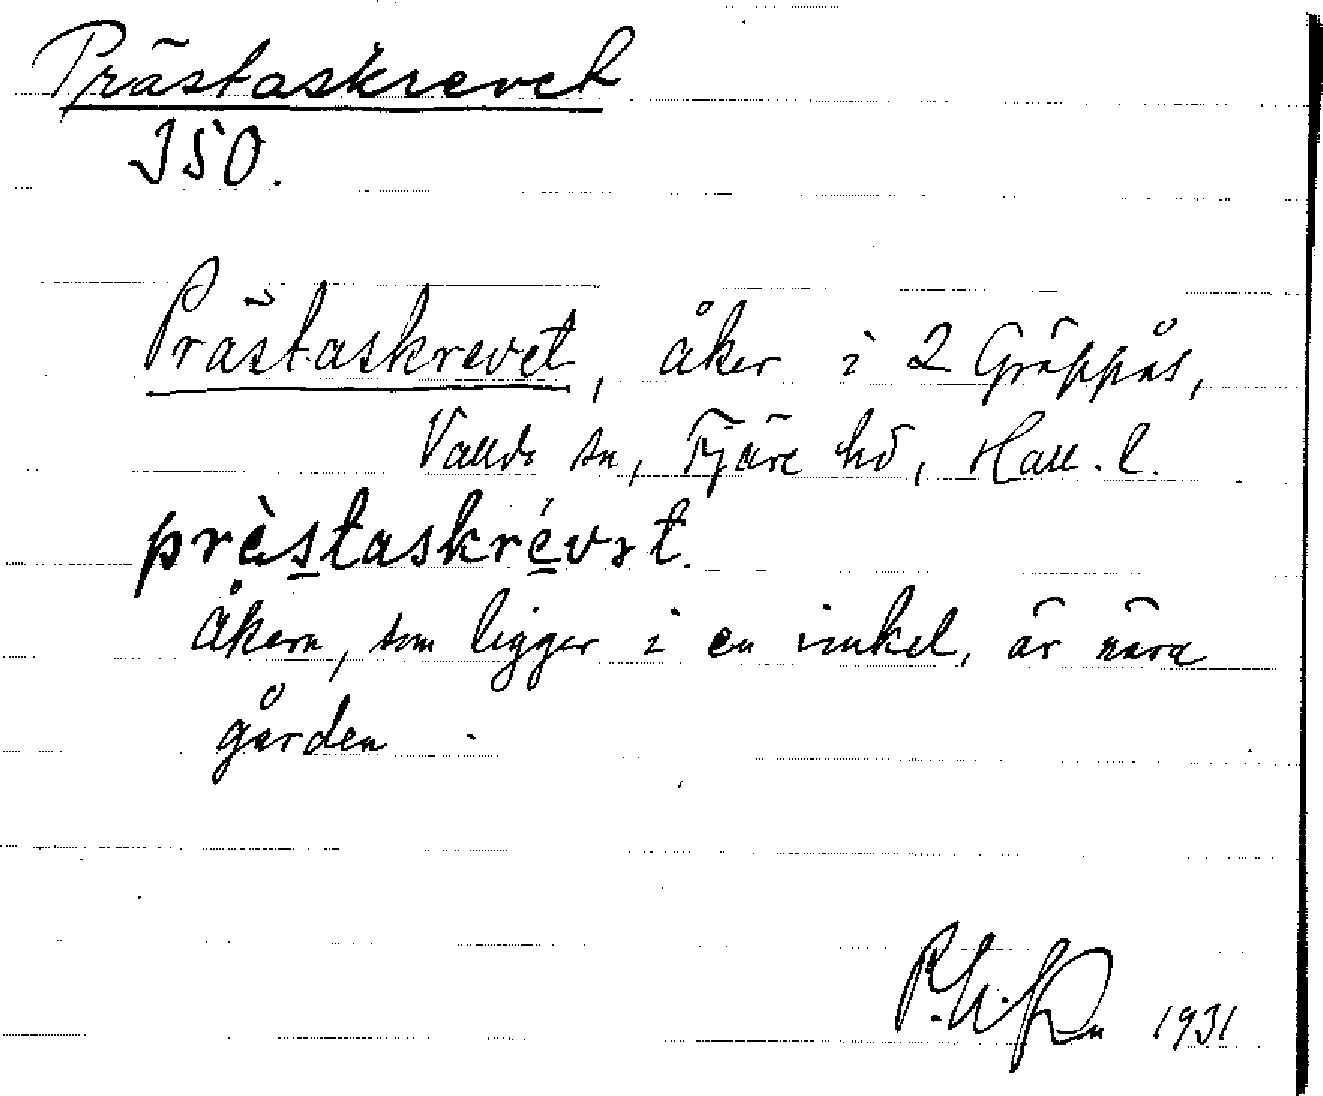 Prästaskrevet
ISO.
Prästaskrevet, åker i 2 Gräppås,
Vallda sn, Fjäre hd, Hall. l.
prästaskrevət.
Åkern, som ligger i en vinkel, är nära
gården.
1931